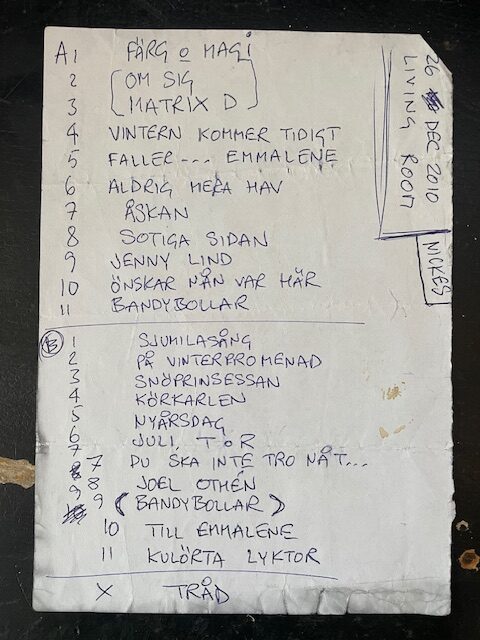 A1 FÄRG O MAGI
2 OM SIG
3 MATRIX D
4 VINTERN KOMMER TIDIGT
5 FALLER --- EMMALENE
6 ALDRIG MERA HAV
7 ÅSKAN
8 SOTIGA SIDAN
9 JENNY LIND
10 ÖNSKAR NÅN VAR HÄR
11 BANDYBOLLAR
B 1 SJUMILASÅNG
2 PÅ VINTERPROMENAD
3 SNÖPRINSESSAN
4 KÖRKARLEN
5 NYÅRSDAG
6 JULI, T O R
7 7 DU SKA INTE TRO NÅT...
8 JOEL OTHÉN
9 (BANDYBOLLAR)
10 TILL EMMALENE
11 KULÖRTA LYKTOR
X TRÅD
26 DEC 2010
LIVING ROOM
NICKES